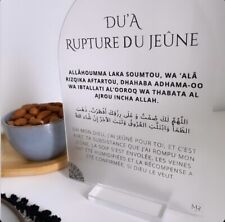 DU'A
RUPTURE DU JEÛNE
ALLÂHOUMMA LAKA SOUMTOU, WA 'ALÂ
RIZQIKA AFTARTOU, DHAHABA ADHAMA-OO
WA IBTALLATI AL'OOROQ WA THABATA AL
AJROU INCHA ALLAH.
اللَّهُمَّ لَكَ صُمْتُ وَ عَلَى رِزْقِكَ أَفْطَرْتُ، ذَهَبَ
الظَّمَأُ وَابْتَلَّتِ الْعُرُوقُ وَثَبَتَ الأَجْرُ إِنْ شَاءَ اللَّهُ
MON DIEU, J'AI JEÛNÉ POUR TOI, ET C'EST
AVEC TA SUBSISTANCE QUE J'AI ROMPU MON
JEÛNE. LA SOIF S'EST ENVOLÉE, LES VEINES
ONT ÉTÉ HUMIDIFIÉES ET LA RÉCOMPENSE A
ÉTÉ CONFIRMÉE, SI DIEU LE VEUT.